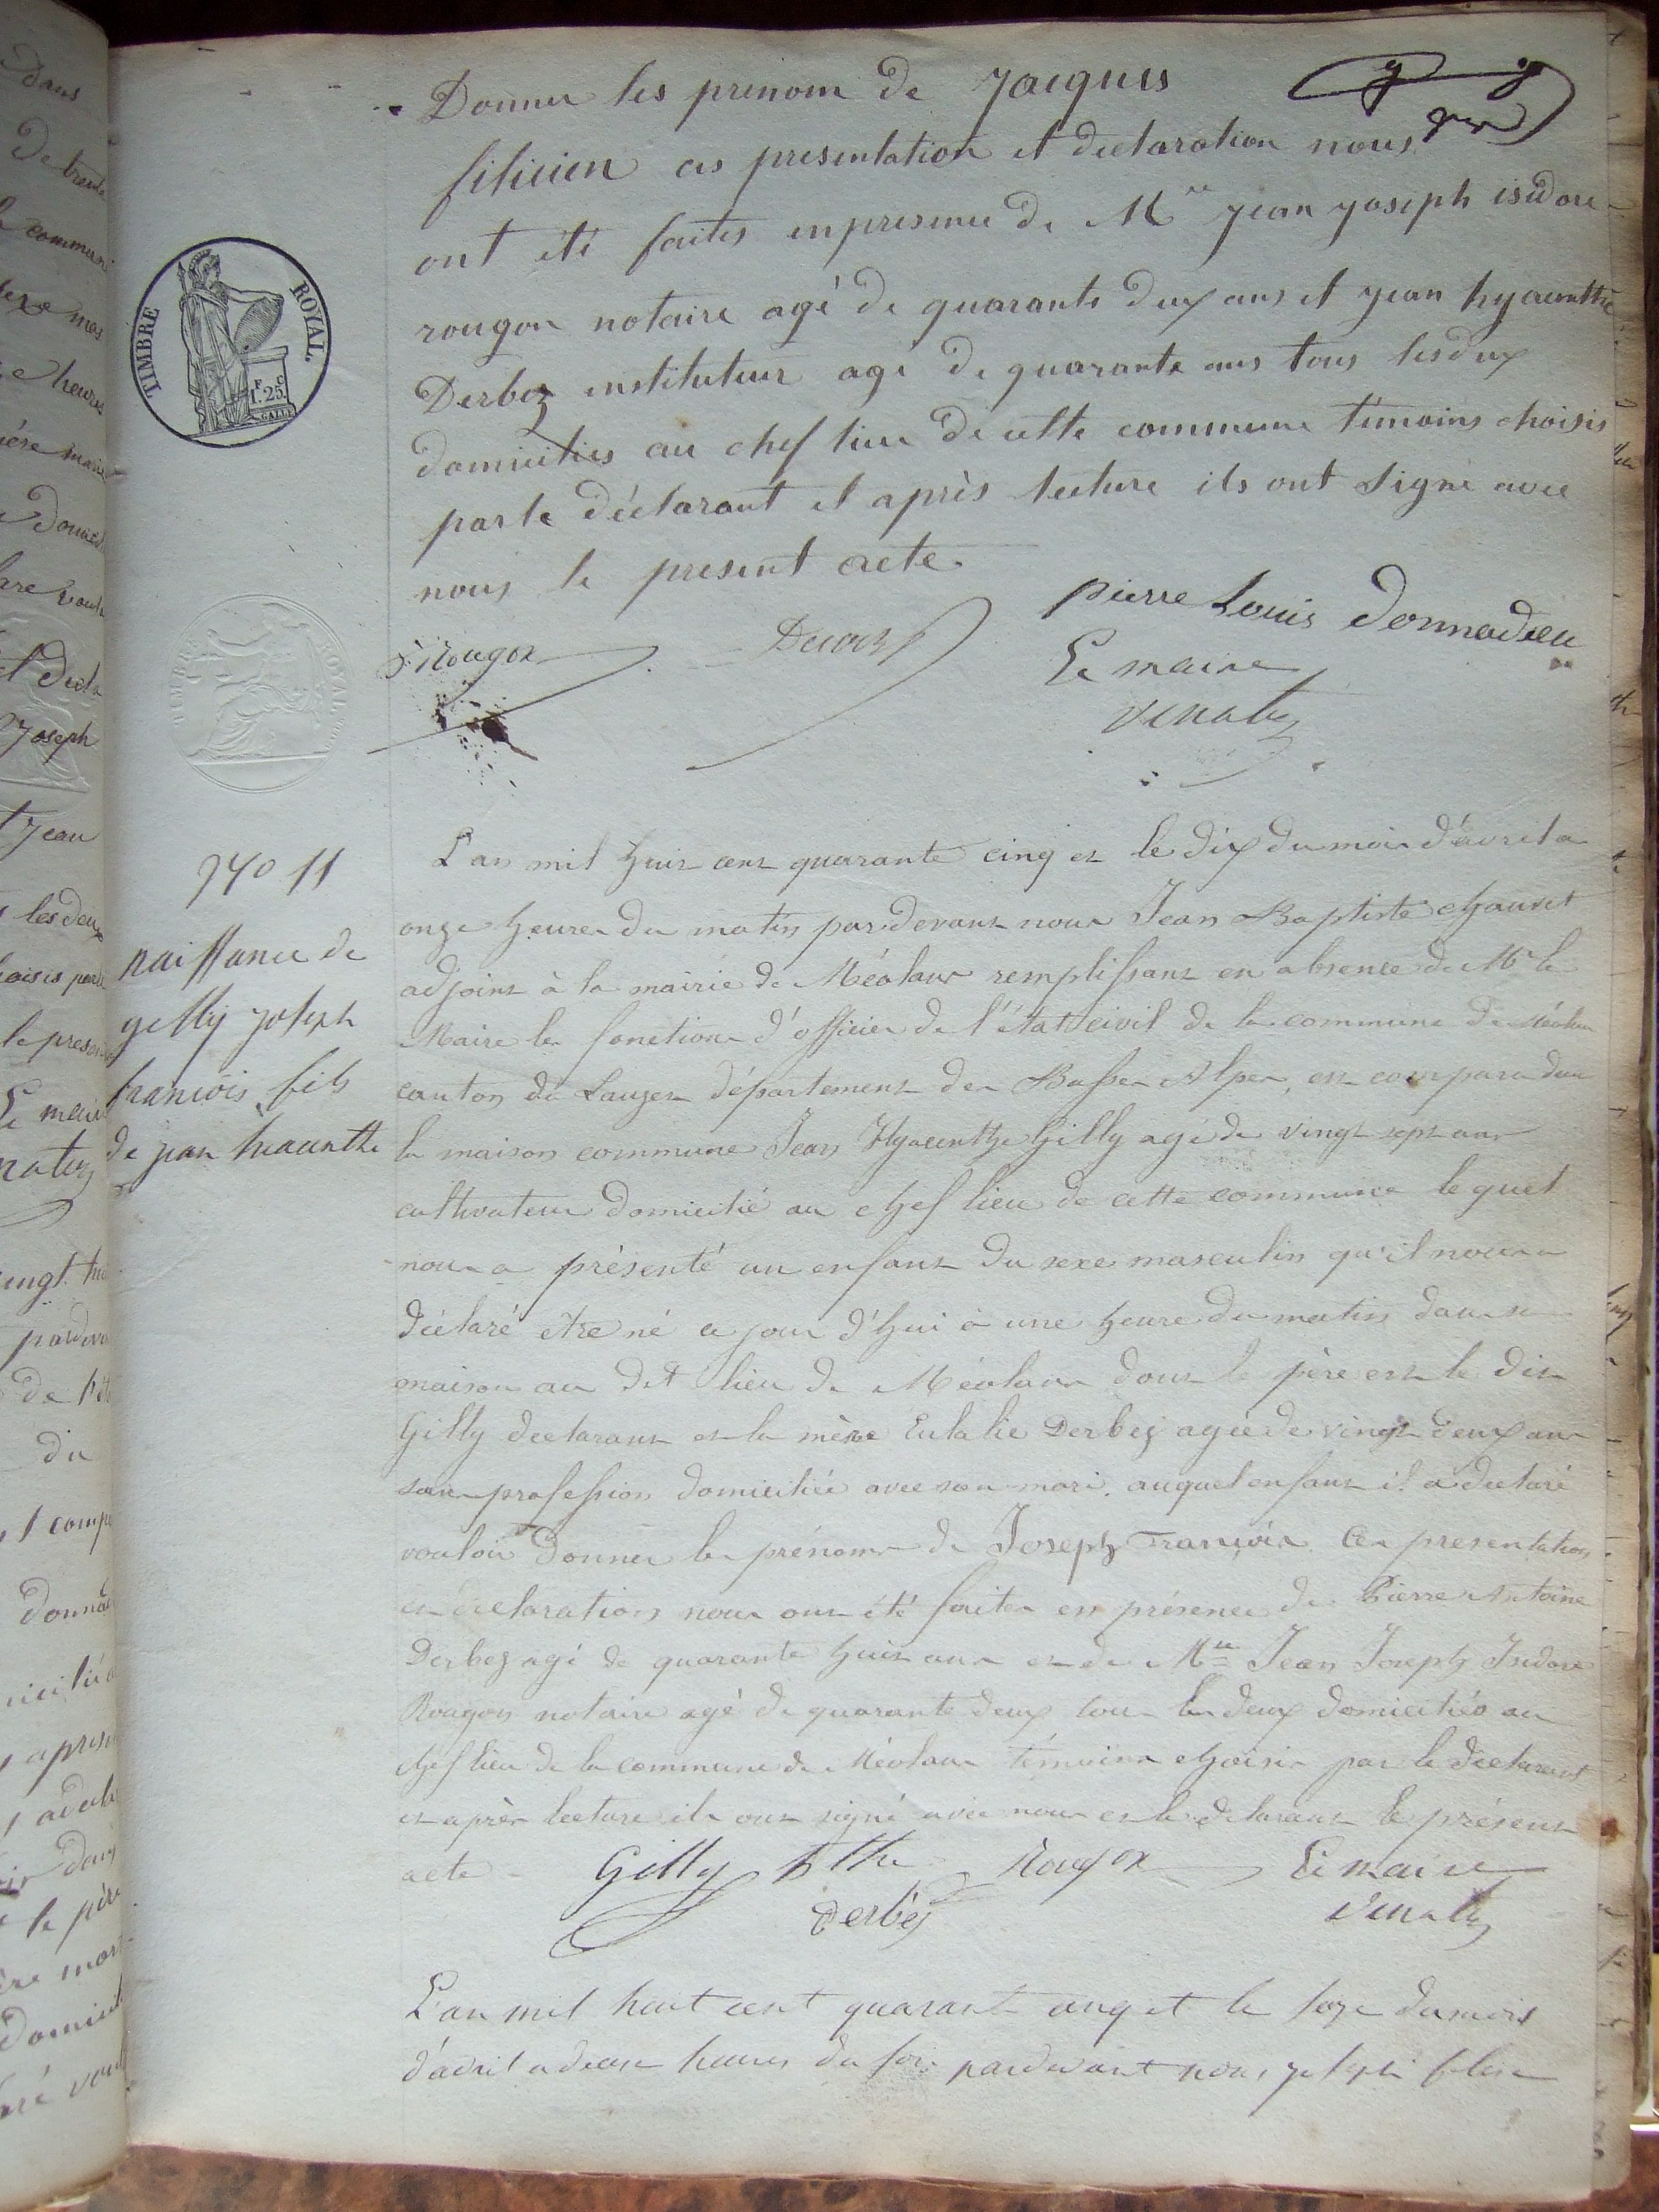 Donner les prenom de Jacques
filicien ces presentation et declaration nous
ont été faites en presence de Me jean joseph isidore
rougon notaire agé de quarante deux ans et jean hyacinthe
Derbez instituteur agé de quarante ans tous les deux
domiciliés au chef lieu de cette commune témoins choisis
par le déclarant et après lecture ils ont signé avec
nous le present acte
pierre Louis donnadieu
Rougon
Le maire
TIMBRE ROYAL.
F. C.
1.25.
GALLE
No 11
naissance de
gilly joseph
francois fils
de jean hiacinthe
L'an mil huit cent quarante cinq et le dix du mois d'avril a
onze heures du matin pardevant nous Jean Baptiste Chauvet
adjoint à la mairie de Méolans remplissant en absence de Mr le
Maire les fonctions d'officier de l'état civil de la commune de Méolans
canton du Lauzet département des Basses Alpes, est comparu dans
la maison commune Jean Hyacinthe Gilly agé de vingt sept ans
cultivateur domicilié au chef lieu de cette commune lequel
nous a présenté un enfant du sexe masculin qu'il nous a
déclaré être né ce jour d'hui à une heure du matin dans sa
maison au dit lieu de Méolans dont le père est le dit
Gilly declarant et la mère Eulalie Derbez agée de vingt deux ans
sans profession domiciliée avec son mari, auquel enfant il a declaré
vouloir donner les prénoms de Joseph François Ces presentation
et declaration nous ont été faites en présence de Pierre Antoine
Derbez agé de quarante huit ans et de Me Jean Joseph Isidore
Rougon notaire agé de quarante deux tous les deux domiciliés au
chef lieu de la commune de Méolans témoins choisis par le declarant
et après lecture ils ont signé avec nous et le declarant le présent
acte Gilly Rougon Le maire
Derbez
L'an mil huit cent quarante cinq et le seze du mois
d'avril a deuse heures du soir pardevant nous